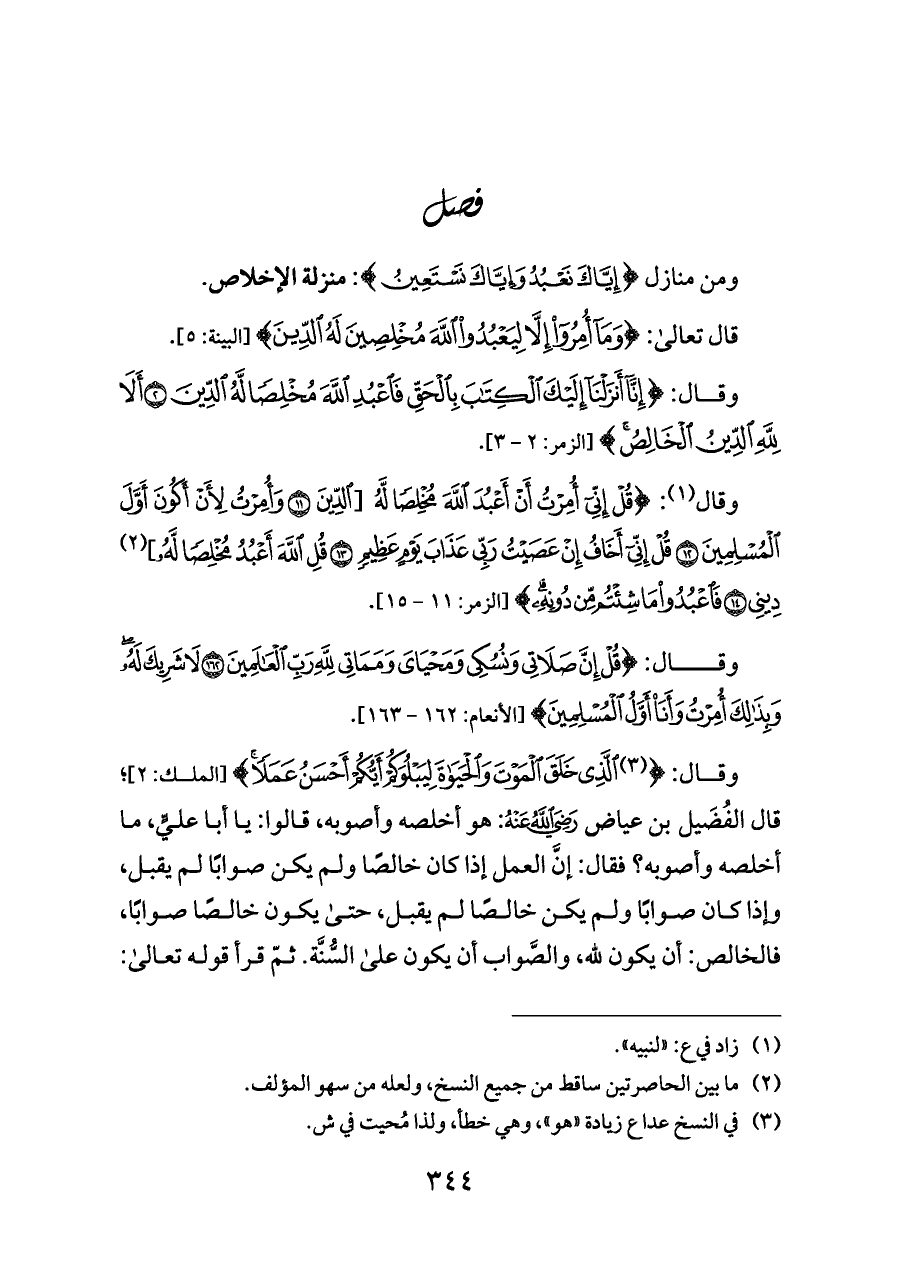 فصل
ومن منازل ﴿إِيَّاكَ نَعْبُدُ وَإِيَّاكَ نَسْتَعِينُ﴾: منزلة الإخلاص.
قال تعالىٰ: ﴿وَمَآ أُمِرُوٓا۟ إِلَّا لِيَعْبُدُوا۟ ٱللَّهَ مُخْلِصِينَ لَهُ ٱلدِّينَ﴾ [البينة: ٥].
وقـال: ﴿إِنَّآ أَنزَلْنَآ إِلَيْكَ ٱلْكِتَٰبَ بِٱلْحَقِّ فَٱعْبُدِ ٱللَّهَ مُخْلِصًا لَّهُ ٱلدِّينَ ۝٢ أَلَا
لِلَّهِ ٱلدِّينُ ٱلْخَالِصُ ۚ﴾ [الزمر: ٢ – ٣].
وقال(١): ﴿قُلْ إِنِّىٓ أُمِرْتُ أَنْ أَعْبُدَ ٱللَّهَ مُخْلِصًا لَّهُ [ٱلدِّينَ ۝١١ وَأُمِرْتُ لِأَنْ أَكُونَ أَوَّلَ
ٱلْمُسْلِمِينَ ۝١٢ قُلْ إِنِّىٓ أَخَافُ إِنْ عَصَيْتُ رَبِّى عَذَابَ يَوْمٍ عَظِيمٍ ۝١٣ قُلِ ٱللَّهَ أَعْبُدُ مُخْلِصًا لَّهُۥ](٢)
دِينِى ۝١٤ فَٱعْبُدُوا۟ مَا شِئْتُم مِّن دُونِهِۦ ۗ﴾ [الزمر: ١١ – ١٥].
وقـــال: ﴿قُلْ إِنَّ صَلَاتِى وَنُسُكِى وَمَحْيَاىَ وَمَمَاتِى لِلَّهِ رَبِّ ٱلْعَٰلَمِينَ ۝١٦٢ لَا شَرِيكَ لَهُۥ ۖ
وَبِذَٰلِكَ أُمِرْتُ وَأَنَا۠ أَوَّلُ ٱلْمُسْلِمِينَ﴾ [الأنعام: ١٦٢ – ١٦٣].
وقـال: ﴿(٣)ٱلَّذِى خَلَقَ ٱلْمَوْتَ وَٱلْحَيَوٰةَ لِيَبْلُوَكُمْ أَيُّكُمْ أَحْسَنُ عَمَلًا ۚ﴾ [الملـك: ٢]؛
قال الفُضَيل بن عياض رَضِيَ اللَّهُ عَنْهُ: هو أخلصه وأصوبه، قـالوا: يـا أبـا عليٍّ، مـا
أخلصه وأصوبه؟ فقال: إنَّ العمل إذا كان خالصًا ولم يكـن صـوابًا لـم يقبـل،
وإذا كـان صـوابًا ولـم يكـن خالـصًا لـم يقبـل، حتـىٰ يكـون خالـصًا صـوابًا،
فالخالص: أن يكون لله، والصَّواب أن يكون علىٰ السُّنَّة. ثـمّ قـرأ قولـه تعـالىٰ:
(١) زاد في ع: «لنبيه».
(٢) ما بين الحاصرتين ساقط من جميع النسخ، ولعله من سهو المؤلف.
(٣) في النسخ عدا ع زيادة «هو»، وهي خطأ، ولذا مُحيت في ش.
٣٤٤